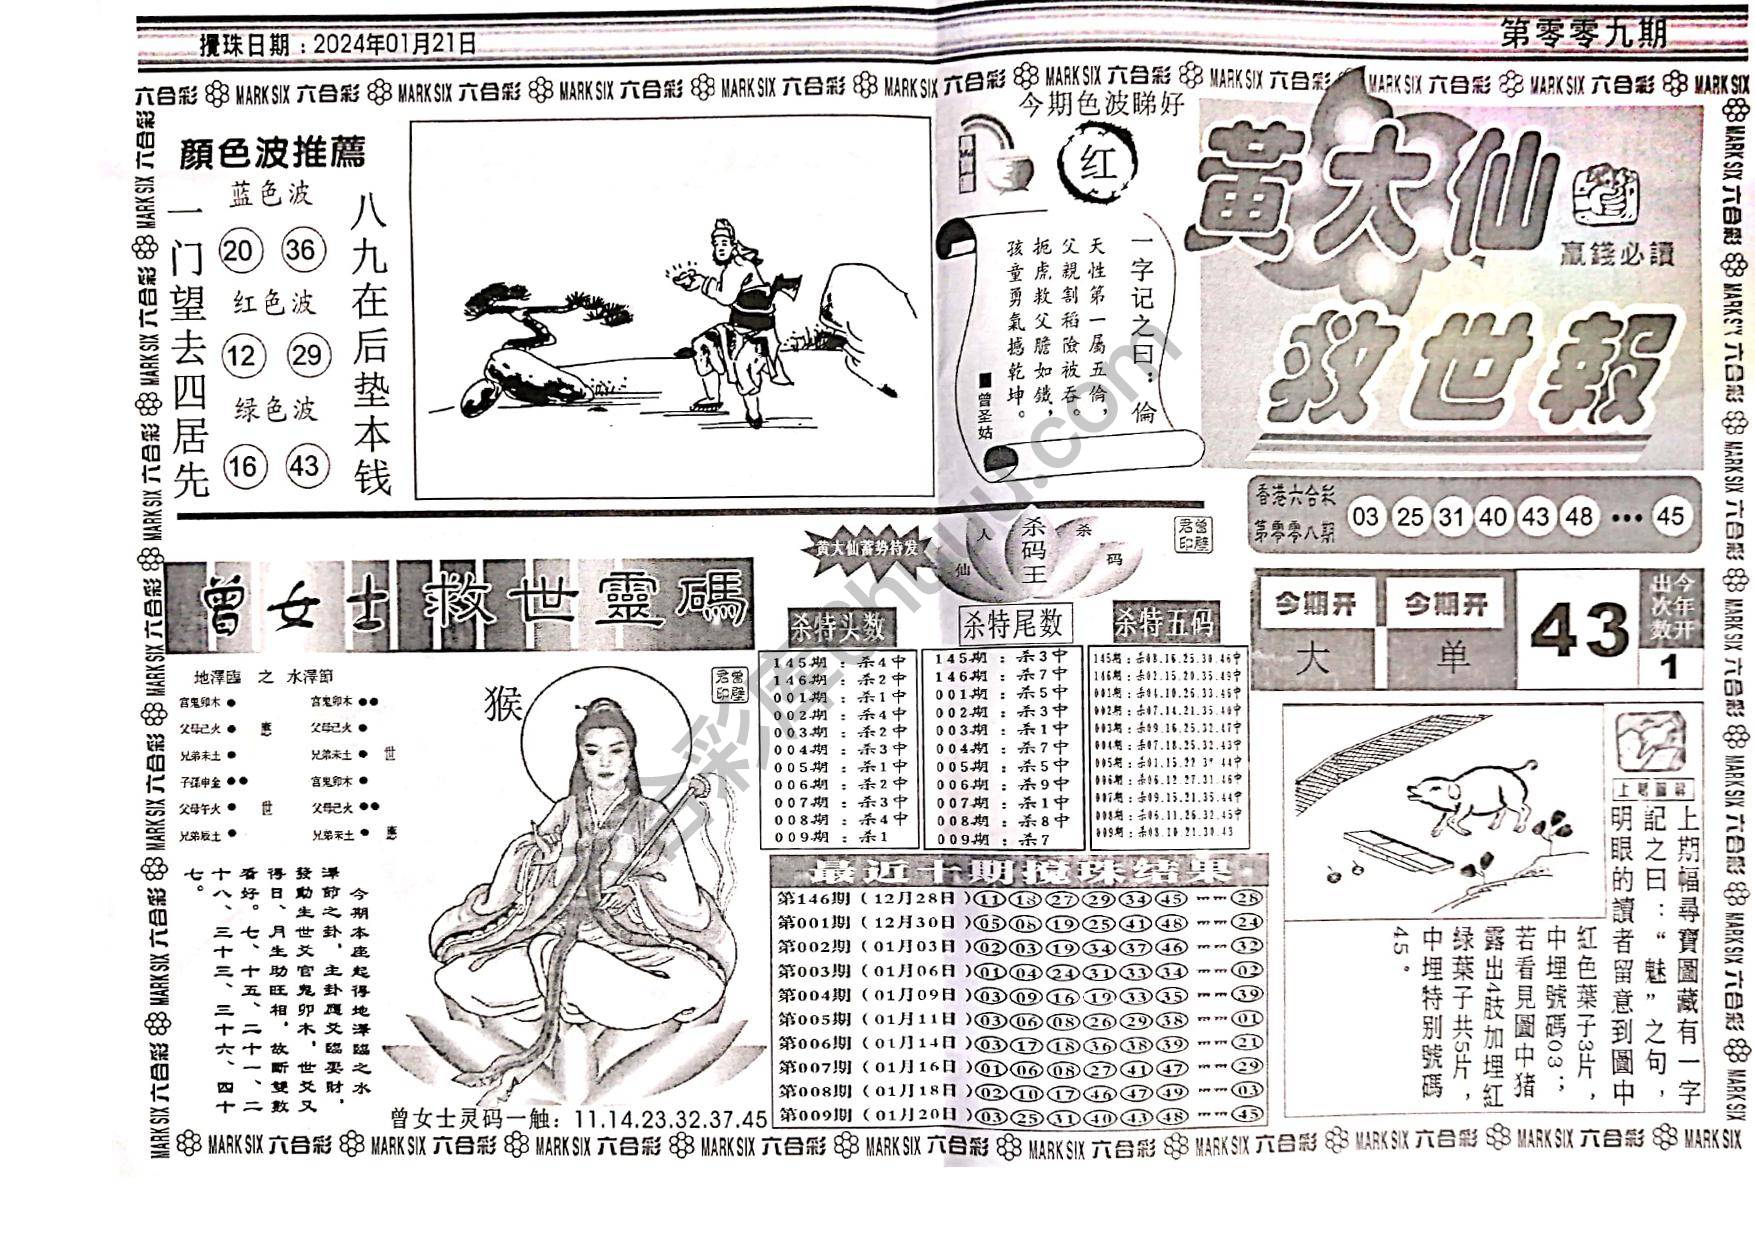 攪珠日期：2024年01月21日
第零零九期
六合彩 MARK SIX 六合彩 MARK SIX 六合彩 MARK SIX 六合彩 MARK SIX 六合彩 MARK SIX 六合彩 MARK SIX 六合彩 MARK SIX 六合彩 MARK SIX 六合彩 MARK SIX 六合彩 MARK SIX
顏色波推薦
一门望去四居先
蓝色波
20 36
红色波
12 29
绿色波
16 43
八九在后垫本钱
今期色波睇好
红
一字记之曰：倫
天性第一屬五倫，
父親割稻險被吞。
扼虎救父膽如鐵，
孩童勇氣撼乾坤。
■曾圣姑
黃大仙
救世報
贏錢必讀
香港六合彩
第零零八期
03 25 31 40 43 48 ••• 45
今期开 大
今期开 单
43
今年开出次数
1
曾女士救世靈碼
地澤臨 之 水澤節
官鬼卯木 ● 官鬼卯木 ●●
父母己火 ● 應 父母己火 ●
兄弟未土 ● 兄弟未土 ● 世
子孫申金 ●● 官鬼卯木 ●
父母午火 ● 世 父母己火 ●●
兄弟辰土 ● 兄弟未土 ● 應
今期本座起得地澤臨之水
澤節之卦，主卦應爻臨妻財，
發動生世爻官鬼卯木，世爻又
得日、月生助旺相，故斷雙數
看好。七、十五、二十一、二
十八、三十三、三十六、四十
七。
猴
曾璧君印
曾女士灵码一触：11.14.23.32.37.45
黄大仙蓄势待发
仙人杀码
杀码王
曾璧君印
杀特头数
145期：杀4中
146期：杀2中
001期：杀1中
002期：杀4中
003期：杀2中
004期：杀3中
005期：杀1中
006期：杀2中
007期：杀3中
008期：杀4中
009期：杀1
杀特尾数
145期：杀3中
146期：杀7中
001期：杀5中
002期：杀3中
003期：杀1中
004期：杀7中
005期：杀5中
006期：杀9中
007期：杀1中
008期：杀8中
009期：杀7
杀特五码
145期：杀08.16.25.30.46中
146期：杀02.15.20.35.49中
001期：杀04.10.26.33.46中
002期：杀07.14.21.35.40中
003期：杀09.16.25.32.47中
004期：杀07.18.25.32.43中
006期：杀06.12.27.31.46中
007期：杀09.15.21.35.44中
008期：杀06.11.26.32.45中
009期：杀08.10.21.30.43
最近十期搅珠结果
第146期（12月28日）11 18 27 29 34 45 —— 28
第001期（12月30日）05 08 19 25 41 48 —— 24
第002期（01月03日）02 03 19 34 37 46 —— 32
第003期（01月06日）01 04 24 31 33 34 —— 02
第004期（01月09日）03 09 16 19 33 35 —— 39
第005期（01月11日）03 06 08 26 29 38 —— 01
第006期（01月14日）03 17 18 36 38 39 —— 21
第007期（01月16日）01 06 08 27 41 47 —— 29
第008期（01月18日）02 10 17 46 47 49 —— 03
第009期（01月20日）03 25 31 40 43 48 —— 45
上期圖解
上期幅尋寶圖藏有一字
記之曰：“魅”之句，
明眼的讀者留意到圖中
紅色葉子3片，
中埋號碼03；
若看見圖中猪
露出4肢加埋紅
绿葉子共5片，
中埋特别號碼
45。
MARK SIX 六合彩 MARK SIX 六合彩 MARK SIX 六合彩 MARK SIX 六合彩 MARK SIX 六合彩 MARK SIX 六合彩 MARK SIX 六合彩 MARK SIX 六合彩 MARK SIX 六合彩 MARK SIX